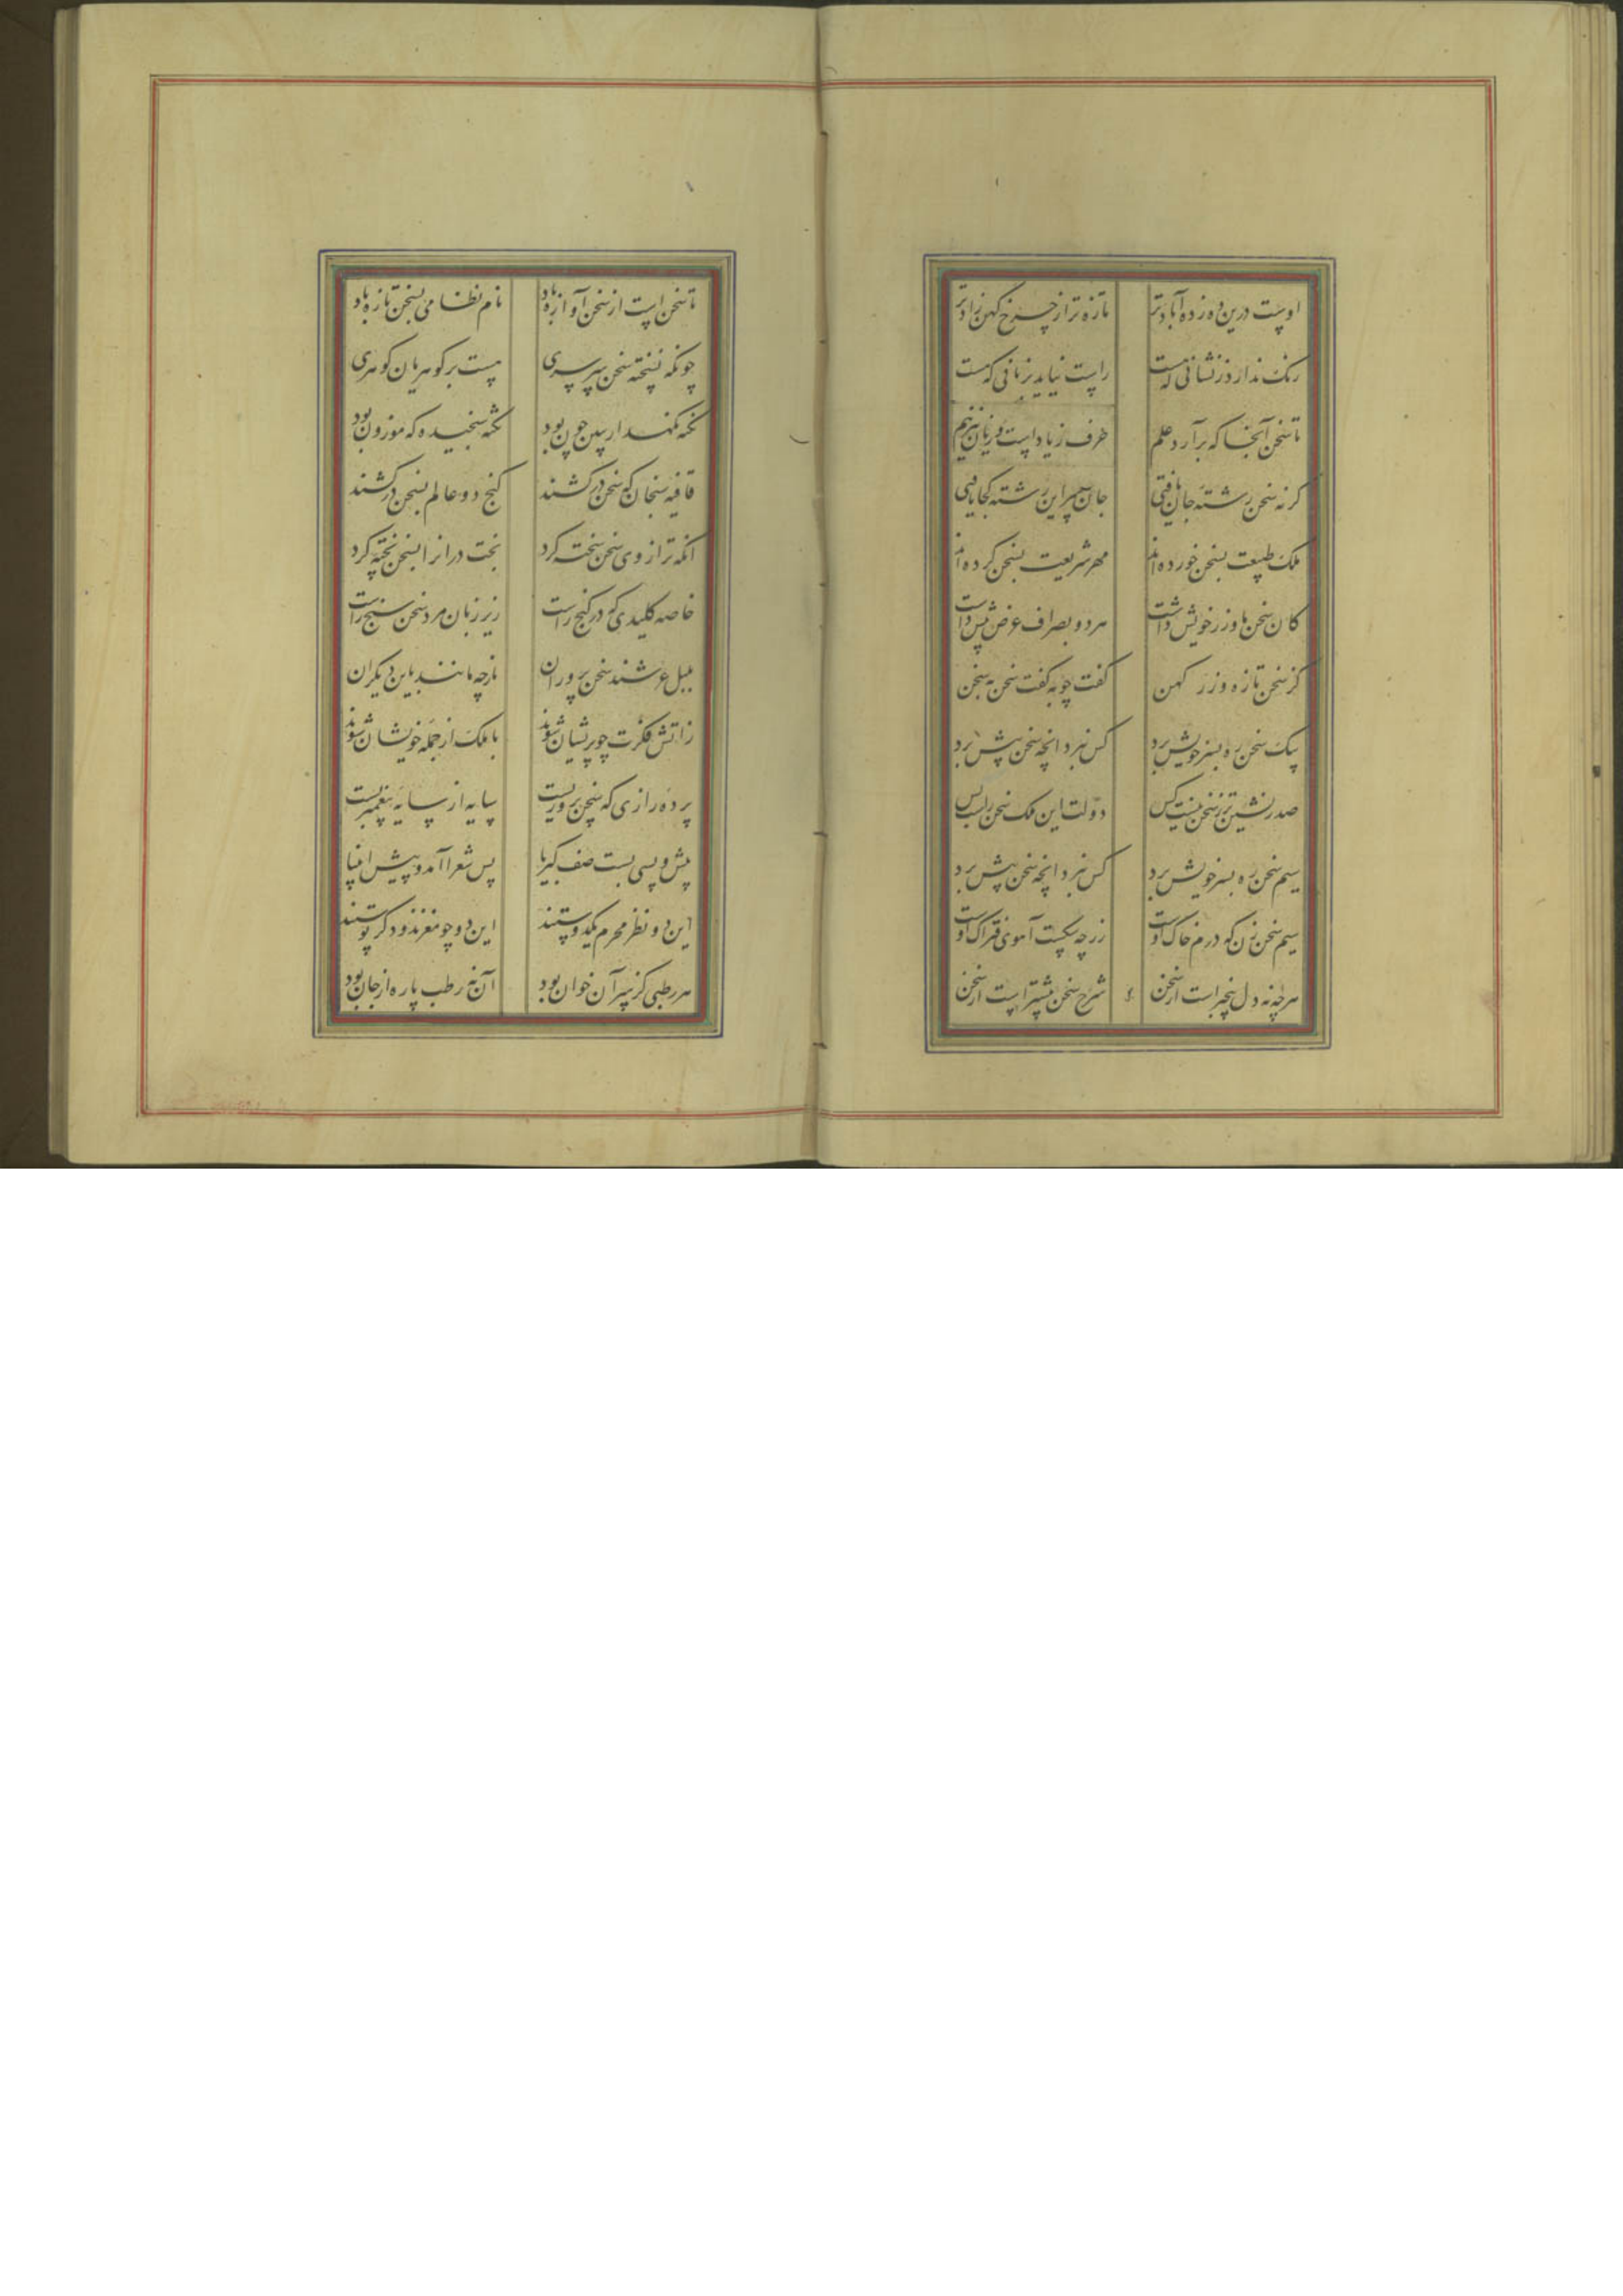 اوست درین ده زده آبادتر تازه تر از چرخ کهن زادتر
رنک ندارد ز نشانی که هست راست نیاید بزبانی که هست
تا سخن آنجا که برآرد علم حرف زیاد است و زبان نیز هم
کرنه سخن رشته جان یافتی جان سر این رشته کجا یافتی
ملک طبیعت بسخن خورده‌اند مهر شریعت بسخن کرده‌اند
کان سخن ما و زر خویش داشت هر دو بصراف عرض پیش داشت
کز سخن تازه و زر کهن کفت چو به کفت سخن به سخن
پیک سخن ره بسر خویش برد کس نبرد انچه سخن پیش برد
صدرنشین تر ز سخن نیست کس دولت این ملک سخن راست بس
سیم سخن ره بسر خویش برد کس نبرد انچه سخن پیش برد
سیم سخن زن که درم خاک اوست زر چه سکست آهوی فتراک اوست
هرچه نه دل بیخبر است از سخن شرح سخن بیشتر است از سخن
تا سخن است از سخن آوازه باد نام نظامی بسخن تازه باد
چونکه نسخته سخن سرسری هست بر کوهریان کوهری
نکته نکهدار ببین چون بود نکته سنجیده که موزون بود
قافیه سنجان که سخن درکشند کنج دو عالم بسخن درکشند
انکه ترازوی سخن سخته کرد بخت درانرا بسخن پخته کرد
خاصه کلیدی که در کنج راست زیر زبان مرد سخن سنج راست
بلبل عرشند سخن پروران باز چه مانند باین دیکران
زاتش فکرت چو پریشان شوند با ملک از جمله خویشان شوند
پرده رازی که سخن پروریست سایه از سایه پیغمبریست
پیش و پسی بست صف کبریا پس شعرا آمد و پیش انبیا
این دو نظر محرم یکدوستند این دو چو مغزند و دکر پوستند
هر رطبی کز سر آن خوان بود آن نه رطب پاره از جان بود